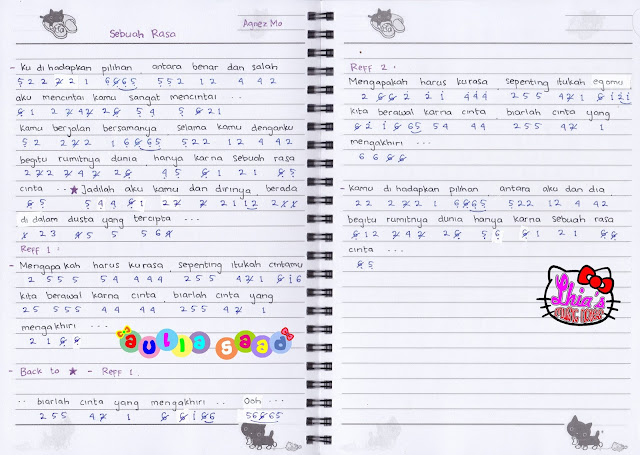 Sebuah Rasa
Agnez Mo
- Ku di hadapkan pilihan antara benar dan salah
5 2 2 2 2 1 6 6 6 5 5 5 2 1 2 4 4 2
aku mencintai kamu sangat mencintai ...
6 1 2 7 4 7 2 6 5 4 5 6 2 1
kamu berjalan bersamanya selama kamu denganku
5 2 2 2 2 1 6 6 6 5 5 2 2 1 2 4 4 2
begitu rumitnya dunia hanya karna sebuah rasa
cinta .. ★ Jadilah aku kamu dan dirinya, berada
6 5
di dalam dusta yang tercipta ...
Reff 1 :
- Mengapakah harus kurasa, sepenting itukah cintamu
2 5 5 5 5 4 4 4 4 2 5 5 4 7 1 6 i 6
kita berawal karna cinta, biarlah cinta yang
2 5 5 5 5 4 4 4 4 2 5 5 4 7 1
mengakhiri ...
2 1 6 6
aulia saad
- Back to ★ - Reff 1.
.. biarlah cinta yang mengakhiri .. Ooh ...
2 5 5 4 7 1 6 6 i 6 6 5 6 6 6 5
Reff 2 .
Mengapakah harus kurasa, sepenting itukah egomu
2 6 6 2 2 i 4 4 4 2 5 5 4 7 1 6 i 2 i
kita berawal karna cinta biarlah cinta yang
6 2 i 6 6 5 5 4 4 4 2 5 5 4 7 1
mengakhiri ...
6 6 6 6
- Kamu di hadapkan pilihan antara aku dan dia,
2 2 2 2 2 1 6 6 6 5 5 2 2 1 2 4 4 2
begitu rumitnya dunia hanya karna sebuah rasa
6 1 2 7 4 7 2 6 5 6 6 1 2 1 6 6
cinta ...
6 5
Lhia's